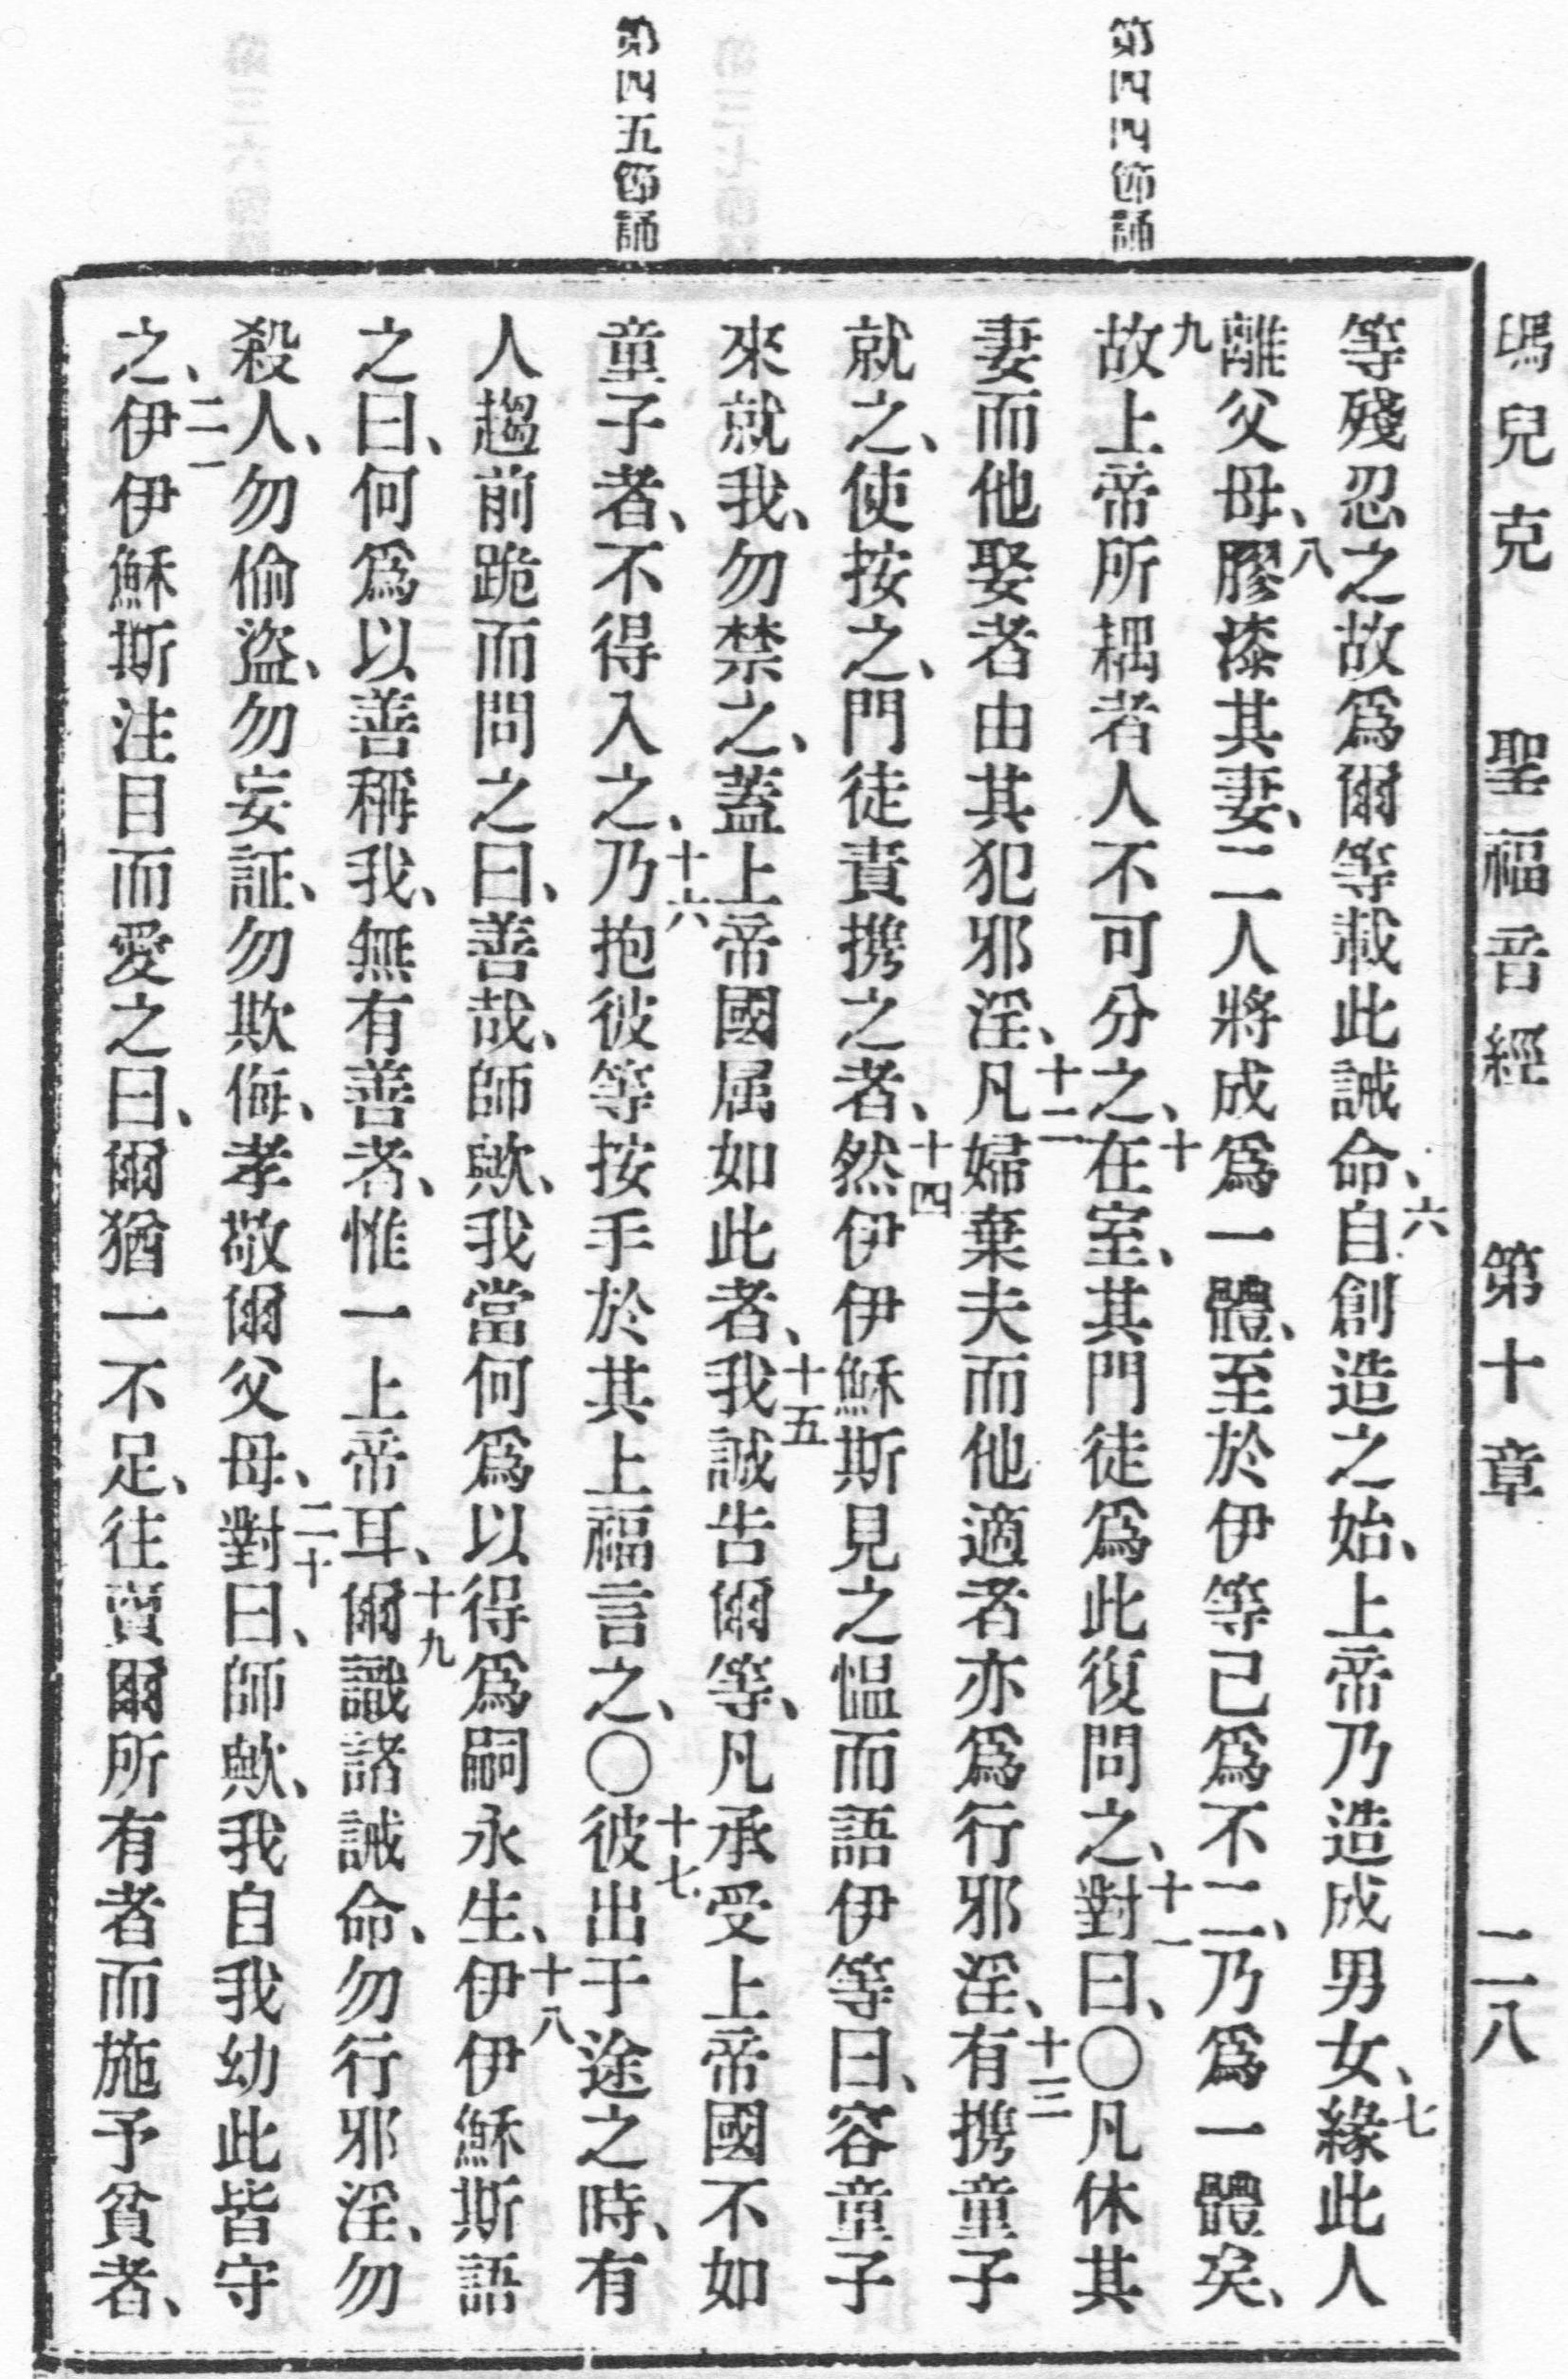 瑪兒克　聖福音經　第十章　二八
第四四節誦
第四五節誦
等殘忍之故爲爾等載此誡命、六自創造之始、上帝乃造成男女、七緣此人
離父母、八膠漆其妻、二人將成爲一體、至於伊等己爲不二、乃爲一體矣、
九故上帝所耦者人不可分之、十在室、其門徒爲此復問之、十一對曰、〇凡休其
妻而他娶者由其犯邪淫、十二凡婦棄夫而他適者亦爲行邪淫、十三有携童子
就之、使按之、門徒責携之者、十四然伊伊穌斯見之愠而語伊等曰、容童子
來就我、勿禁之、蓋上帝國属如此者、十五我誠告爾等、凡承受上帝國不如
童子者、不得入之、十六乃抱彼等按手於其上福言之、〇十七彼出于途之時、有
人趨前跪而問之曰、善哉、師歟、我當何爲以得爲嗣永生、十八伊伊穌斯語
之曰、何爲以善稱我、無有善者、惟一上帝耳、十九爾識諸誡命、勿行邪淫、勿
殺人、勿偷盜、勿妄証、勿欺侮、孝敬爾父母、二十對曰、師歟、我自我幼此皆守
之、二一伊伊穌斯注目而愛之曰、爾猶一不足、往賣爾所有者而施予貧者、